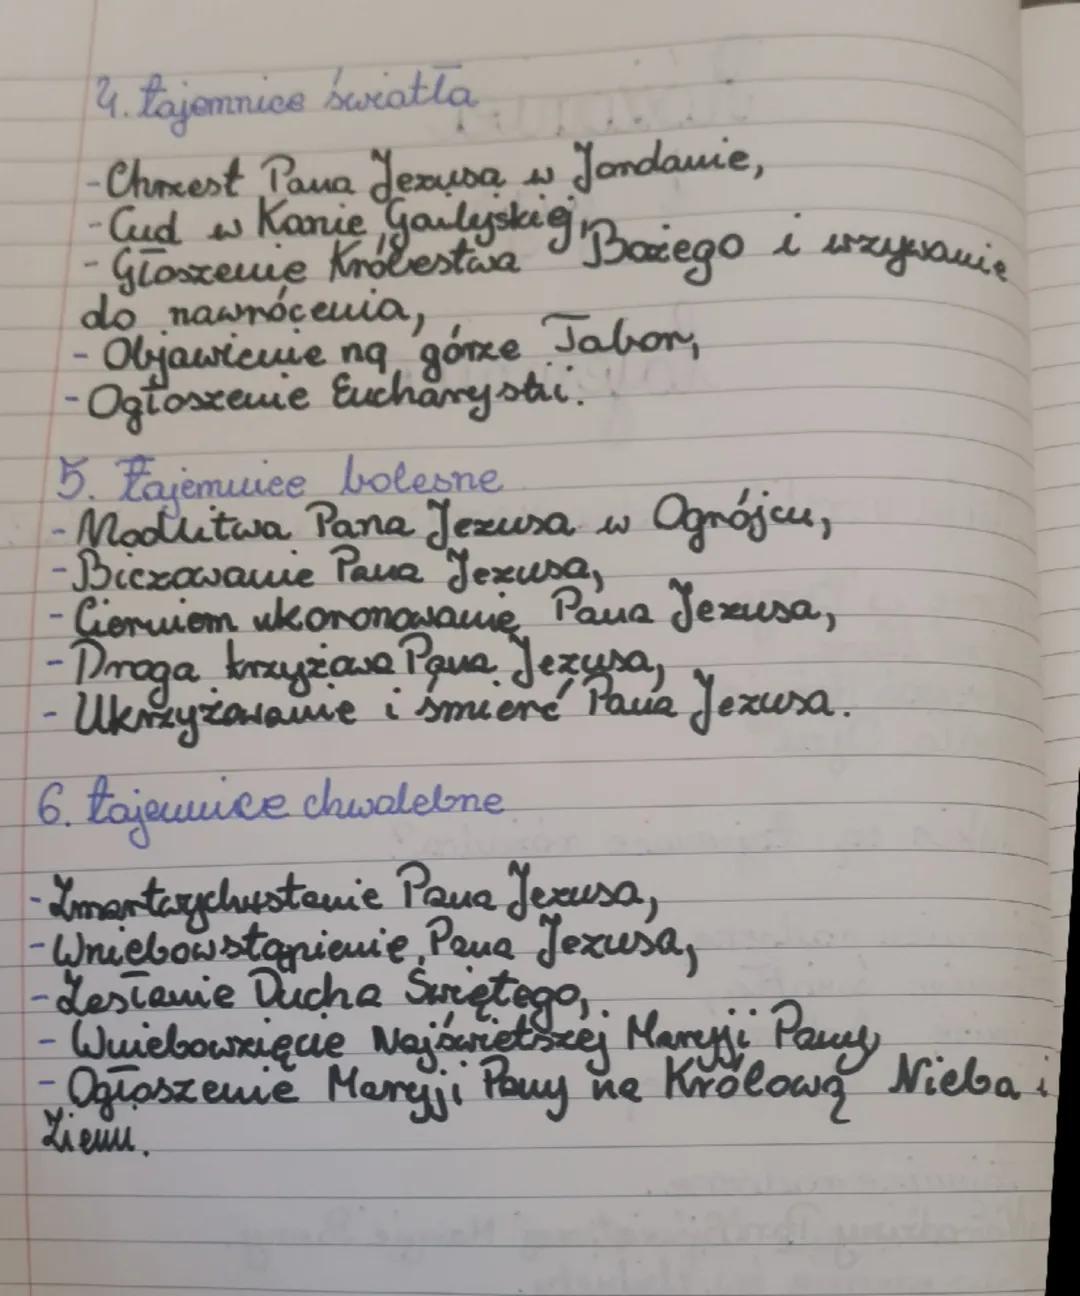 4. tajemnice światła
- Chrzest Pana Jezusa w Jordanie,
- Cud w Kanie Galilejskiej,
- Głoszenie Królestwa Bożego i wzywanie
do nawrócenia,
- Objawienie na górze Tabor,
- Ogłoszenie Eucharystii.
5. Tajemnice bolesne
- Modlitwa Pana Jezusa w Ogrójcu,
- Biczowanie Pana Jezusa,
- Cierniem ukoronowanie Pana Jezusa,
- Droga krzyżowa Pana Jezusa,
- Ukrzyżowanie i śmierć Pana Jezusa.
6. tajemnice chwalebne
- Zmartwychwstanie Pana Jezusa,
- Wniebowstąpienie Pana Jezusa,
- Zesłanie Ducha Świętego,
- Wniebowzięcie Najświętszej Maryji Panny,
- Ogłoszenie Maryji Panny na Królową Nieba i
Ziemi.